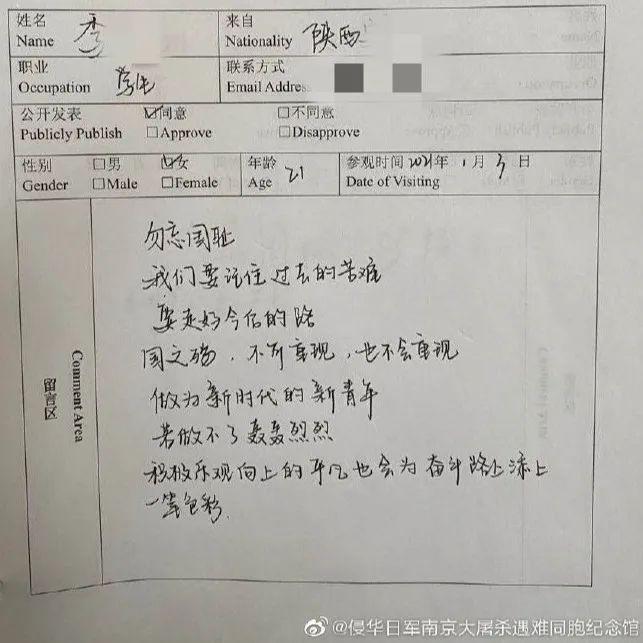 姓名 李 来自 陕西
Name Nationality
职业 学生 联系方式
Occupation Email Address
公开发表 ☑同意 □不同意
Publicly Publish □Approve □Disapprove
性别 □男 ☑女 年龄 21 参观时间 2021年 1月3日
Gender □Male □Female Age Date of Visiting
留言区
Comment Area
勿忘国耻
我们要记住过去的苦难
要走好今后的路
国之殇，不可重现，也不会重现
做为新时代的新青年
若做不了轰轰烈烈
积极乐观向上的平凡也会为奋斗路上添上
一笔色彩.
@侵华日军南京大屠杀遇难同胞纪念馆